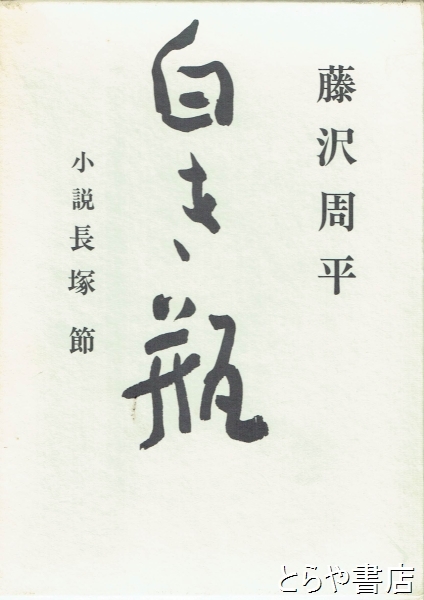 藤沢周平
白き瓶
小説長塚節
とらや書店